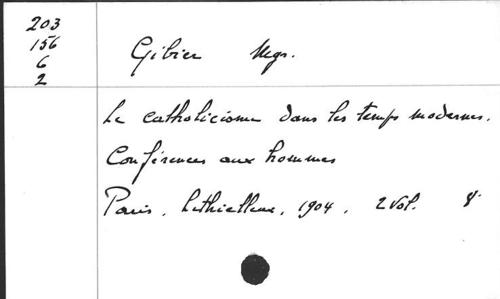 203
156
6
2
Gibier Mgr.
Le catholicisme dans les temps modernes.
Conférences aux hommes
Paris, Lethielleux, 1904, 2 vol. 8°